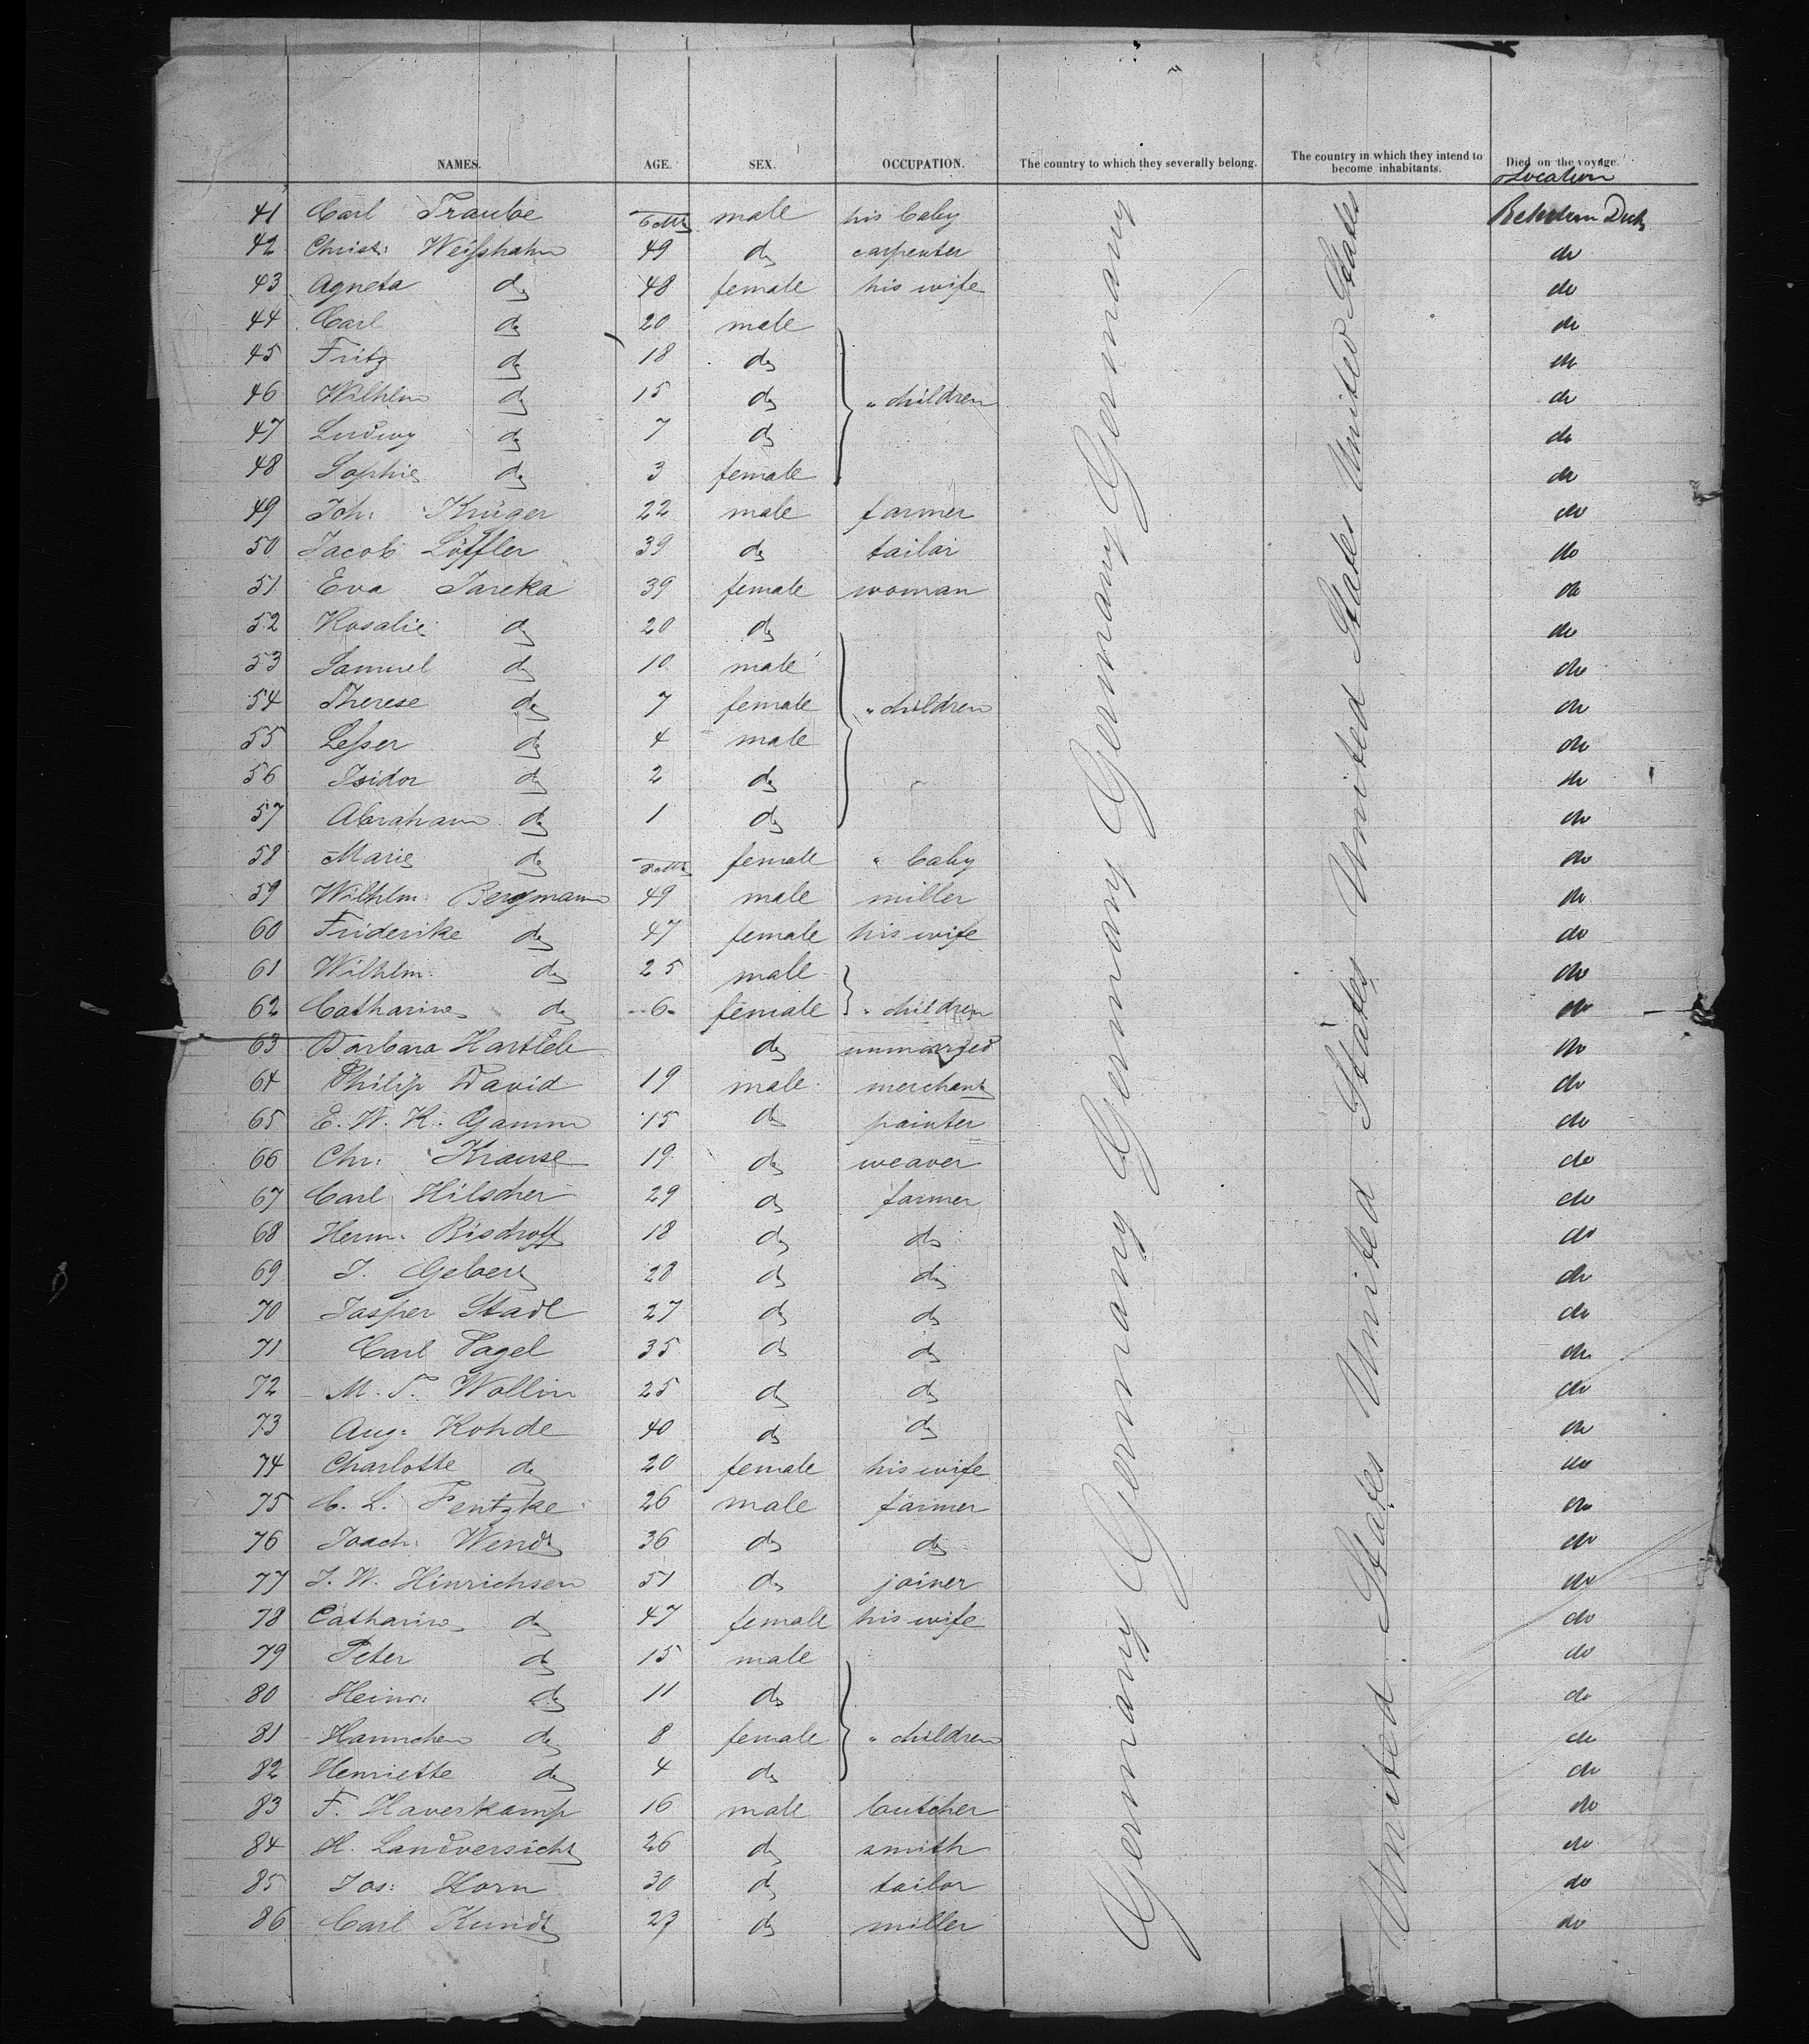 NAMES. AGE. SEX. OCCUPATION. The country to which they severally belong. The country in which they intend to become inhabitants. Died on the voyage. Location
41 Carl Traube male his baby Between Deck
42 Christ: Weißhahn 49 do carpenter do
43 Agneta do 48 female his wife do
44 Carl do 20 male do
45 Fritz do 18 do do
46 Wilhlm do 15 do " children do
47 Ludwig do 7 do do
48 Sophie do 3 female do
49 Joh: Krüger 22 male farmer do
50 Jacob Löffler 39 do tailor do
51 Eva Jareka 39 female woman do
52 Rosalie do 20 do do
53 Samuel do 10 male do
54 Therese do 7 female " children do
55 Leßer do 4 male do
56 Isidor do 2 do do
57 Abraham do 1 do do
58 Marie do female " baby do
59 Wilhlm: Bergmann 49 male miller do
60 Friderike do 47 female his wife do
61 Wilhlm: do 25 male do
62 Catharine do 6 female " children do
63 Barbara Hartleb do unmarried do
64 Philip David 19 male merchant do
65 E. W. K. Gamm 15 do painter do
66 Chr: Krause 19 do weaver do
67 Carl Hilscher 29 do farmer do
68 Herm: Bischoff 18 do do do
69 J. Gebers 28 do do do
70 Jasper Stadl 27 do do do
71 Carl Vagel 35 do do do
72 M. T. Wollin 25 do do do
73 Aug: Rohde 40 do do do
74 Charlotte do 20 female his wife do
75 C. L. Pentzke 26 male farmer do
76 Joach: Wendt 36 do do do
77 J. W. Hinrichsen 51 do joiner do
78 Catharine do 47 female his wife do
79 Peter do 15 male do
80 Heinr: do 11 do do
81 Hannchen do 8 female " children do
82 Henriette do 4 do do
83 F. Haverkamp 16 male butcher do
84 H. Landversicht 26 do smith do
85 Jos: Horn 30 do tailor do
86 Carl Kundt 27 do miller do
Germany Germany Germany Germany Germany Germany
United States United States United States United States